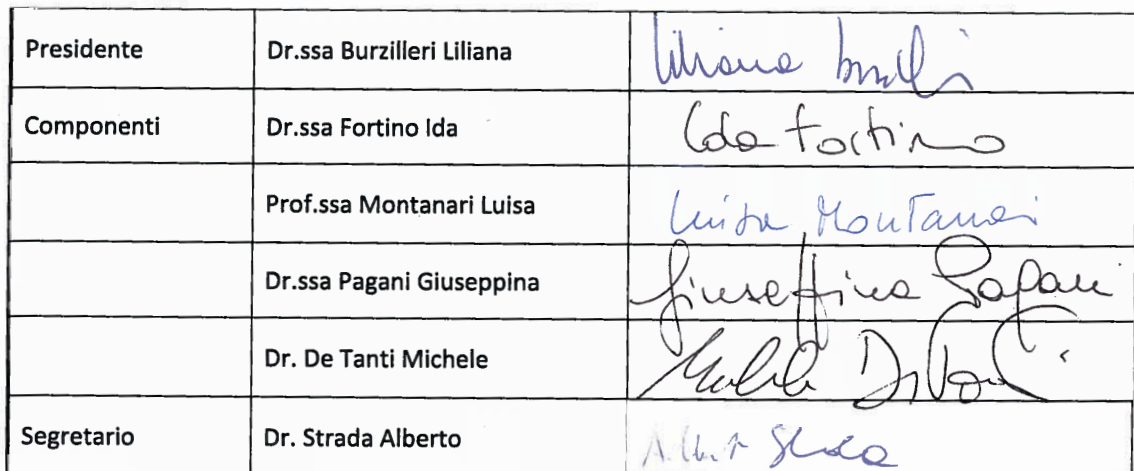 Presidente Dr.ssa Burzilleri Liliana Liliana
Componenti Dr.ssa Fortino Ida Ida Fortino
Prof.ssa Montanari Luisa Luisa Montanari
Dr.ssa Pagani Giuseppina Giuseppina Pagani
Dr. De Tanti Michele
Segretario Dr. Strada Alberto